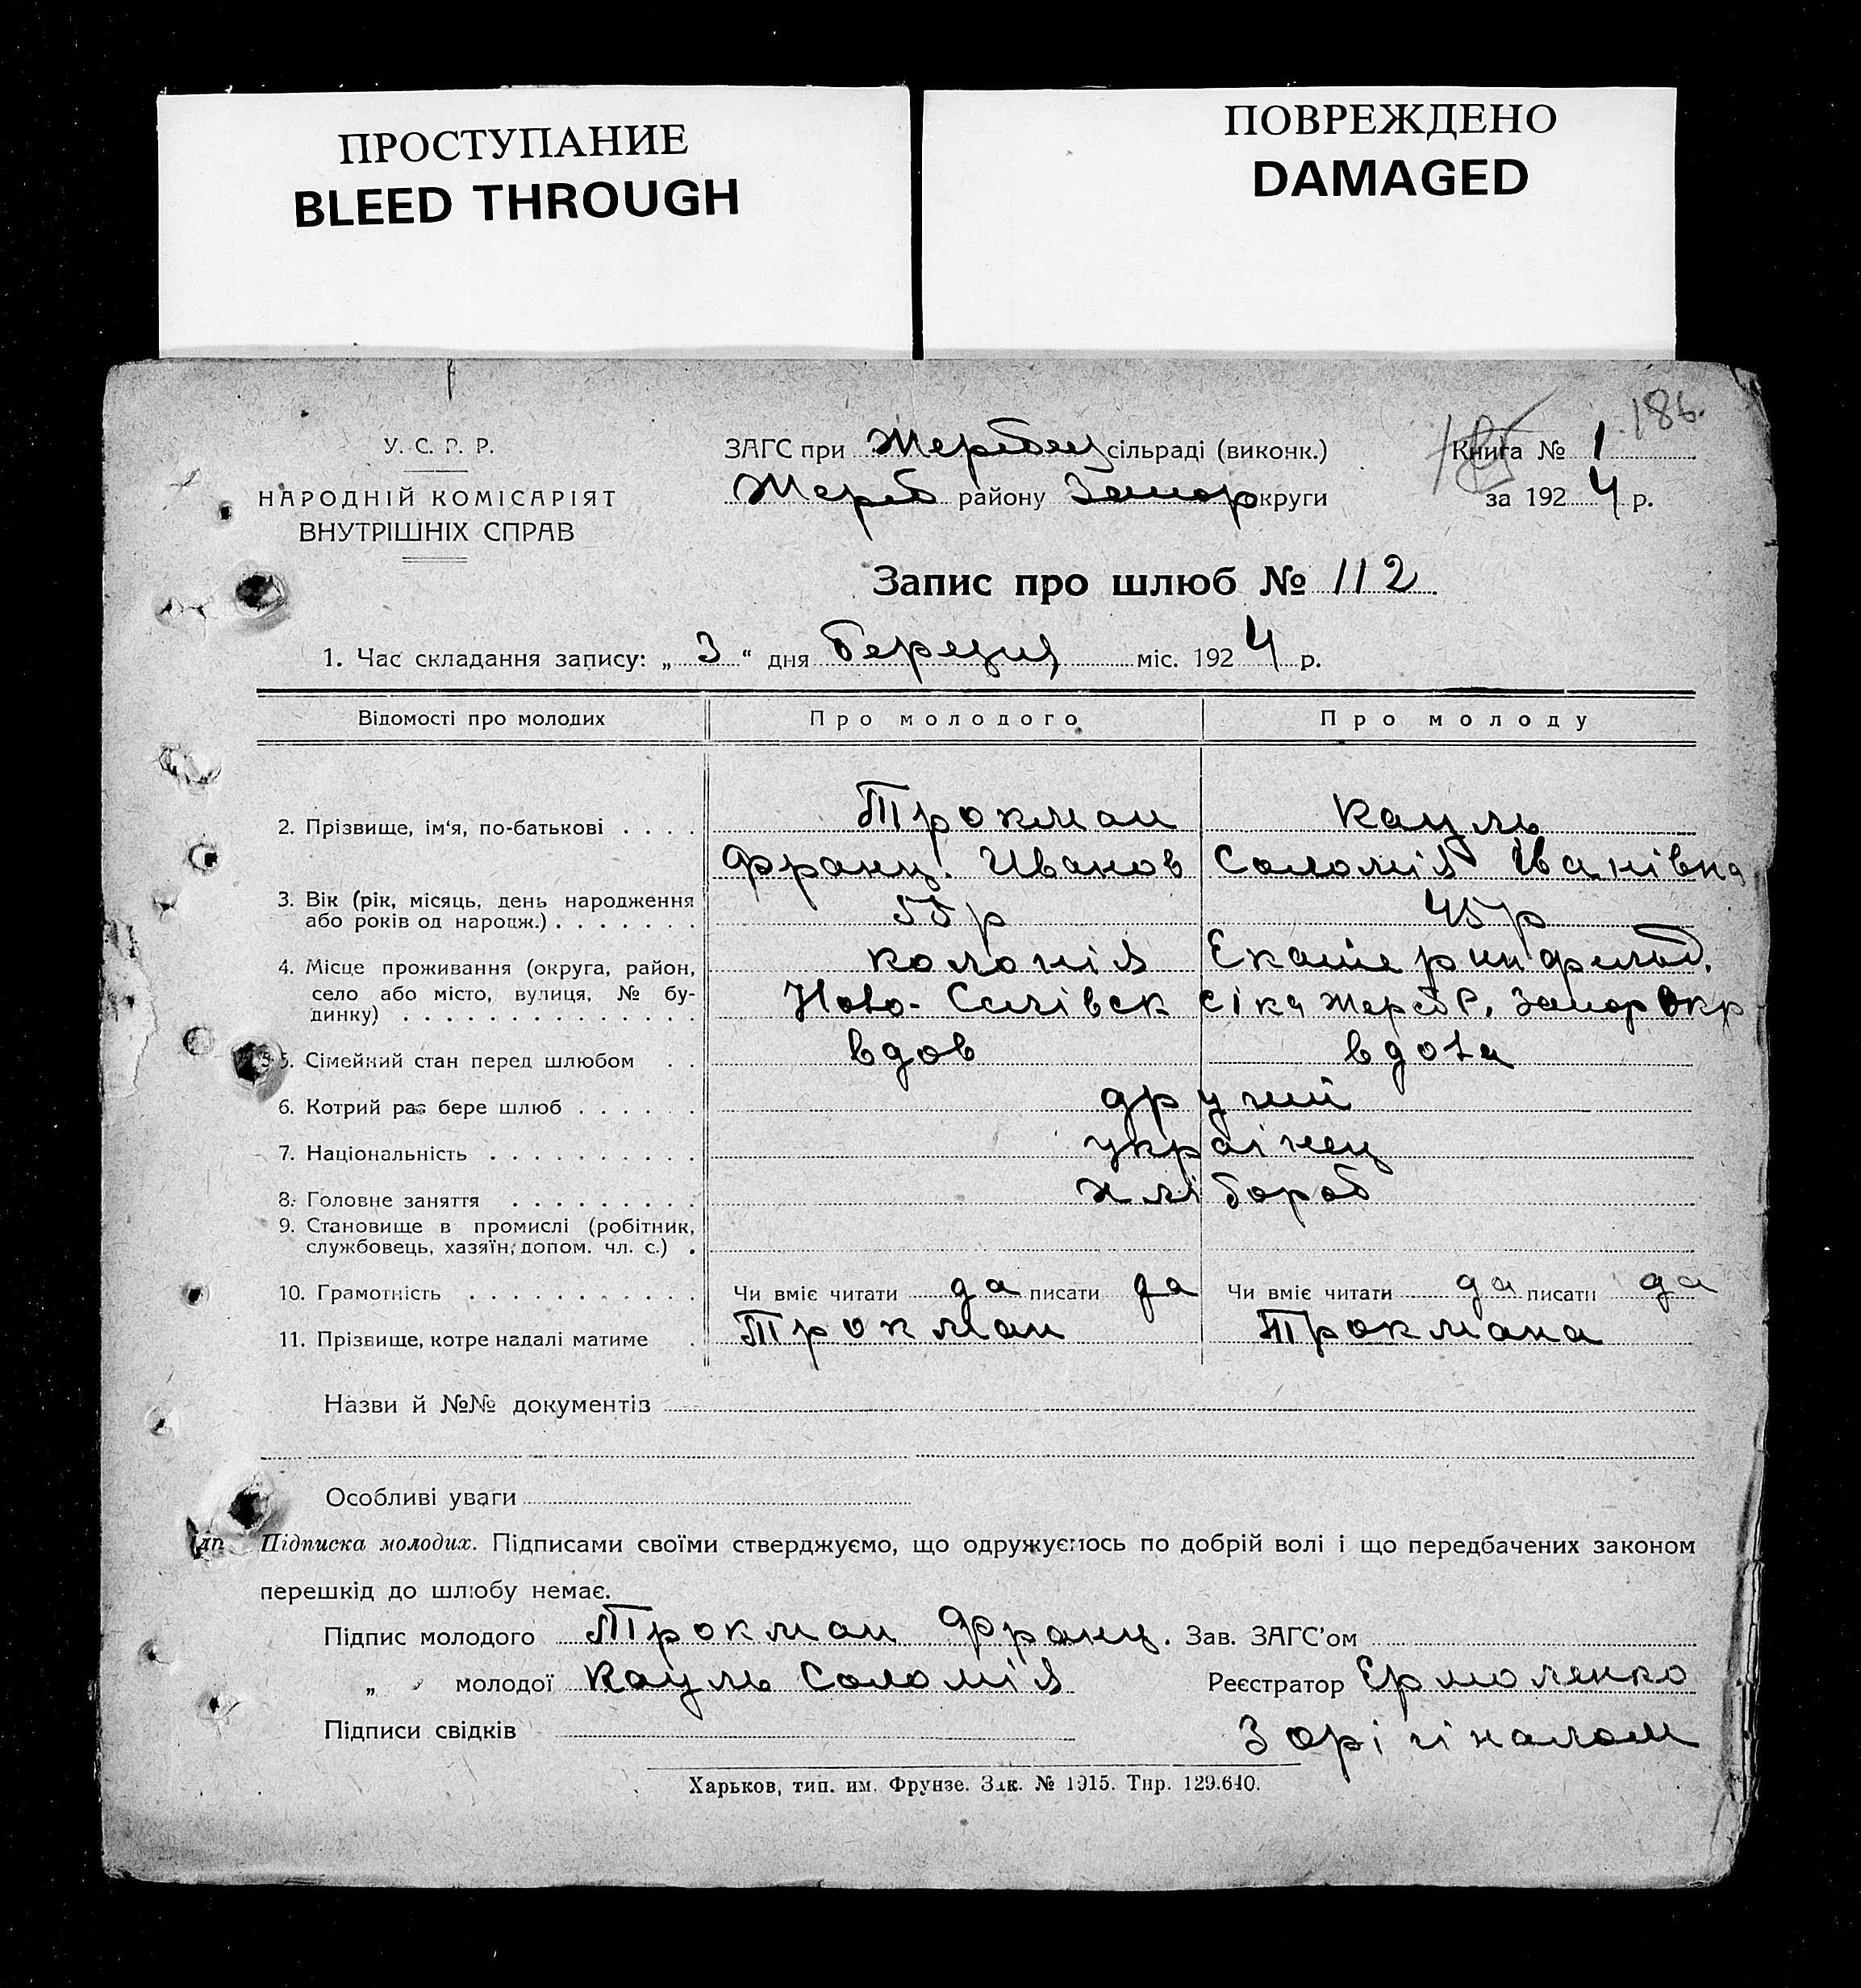 ПРОСТУПАНИЕ
BLEED THROUGH
ПОВРЕЖДЕНО
DAMAGED
186.
У. С. Р. Р.
НАРОДНІЙ КОМІСАРІЯТ
ВНУТРІШНІХ СПРАВ
ЗАГС при Жеребец сільраді (виконк.)
Жереб району Запор округи
Книга № 1
за 1924 р.
Запис про шлюб № 112
1. Час складання запису: „ 3 “ дня березня міс. 1924 р.
Відомості про молодих Про молодого Про молоду
2. Прізвище, ім'я, по-батькові . . . . Трокман Кауль
Франц. Иванов Соломія Іванівна
3. Вік (рік, місяць, день народження
або років од народж.) . . . . . . . 55р 45р
4. Місце проживання (округа, район,
село або місто, вулиця, № бу-
динку) . . . . . . . . . . . . . .
колонія Екатеринфельд.
Ново- Жереб Р. Запор Окр
5. Сімейний стан перед шлюбом . . вдов вдова
6. Котрий раз бере шлюб . . . . . . другий
7. Національність . . . . . . . . . . українец
8. Головне заняття . . . . . . . . . хлібороб
9. Становище в промислі (робітник,
службовець, хазяїн, допом. чл. с.) .
10. Грамотність . . . . . . . . . . . Чи вміє читати да писати да Чи вміє читати да писати да
11. Прізвище, котре надалі матиме . Трокман Трокмана
Назви й №№ документів
Особливі уваги
Підписка молодих. Підписами своїми стверджуємо, що одружуємось по добрій волі і що передбачених законом
перешкід до шлюбу немає.
Підпис молодого Трокман Франц. Зав. ЗАГС'ом
„ „ молодої Кауль Соломія Реєстратор Ермоленко
Підписи свідків З орігіналом
Харьков, тип. им. Фрунзе. Зак. № 1915. Тир. 129.640.